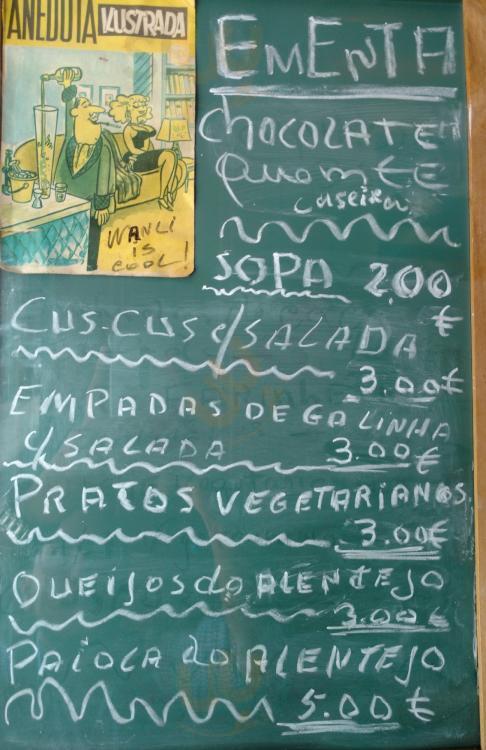 ANEDOTA ILUSTRADA
WANLI
IS
COOL!
EMENTA
CHOCOLATE
quente
caseiro
SOPA 2,00
€
CUS-CUS c/SALADA
3.00€
EMPADAS DE GALINHA
c/SALADA 3.00€
PRATOS VEGETARIANOS
3.00€
QUEIJOS do ALENTEJO
3.00€
PAIOLA do ALENTEJO
5.00€